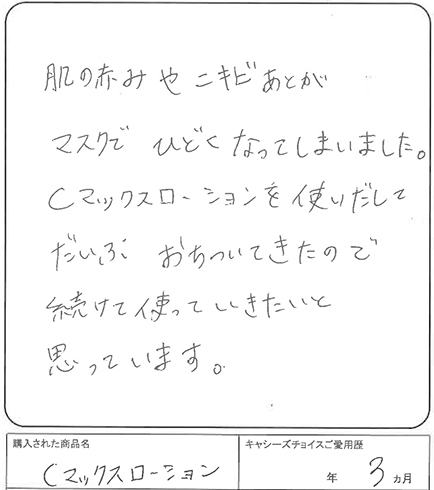 肌の赤みやニキビあとが
マスクで ひどくなってしまいました。
Cマックスローションを使いだして
だいぶ おちついてきたので
続けて使っていきたいと
思っています。
購入された商品名
Cマックスローション
キャシーズチョイスご愛用歴
年 3 カ月